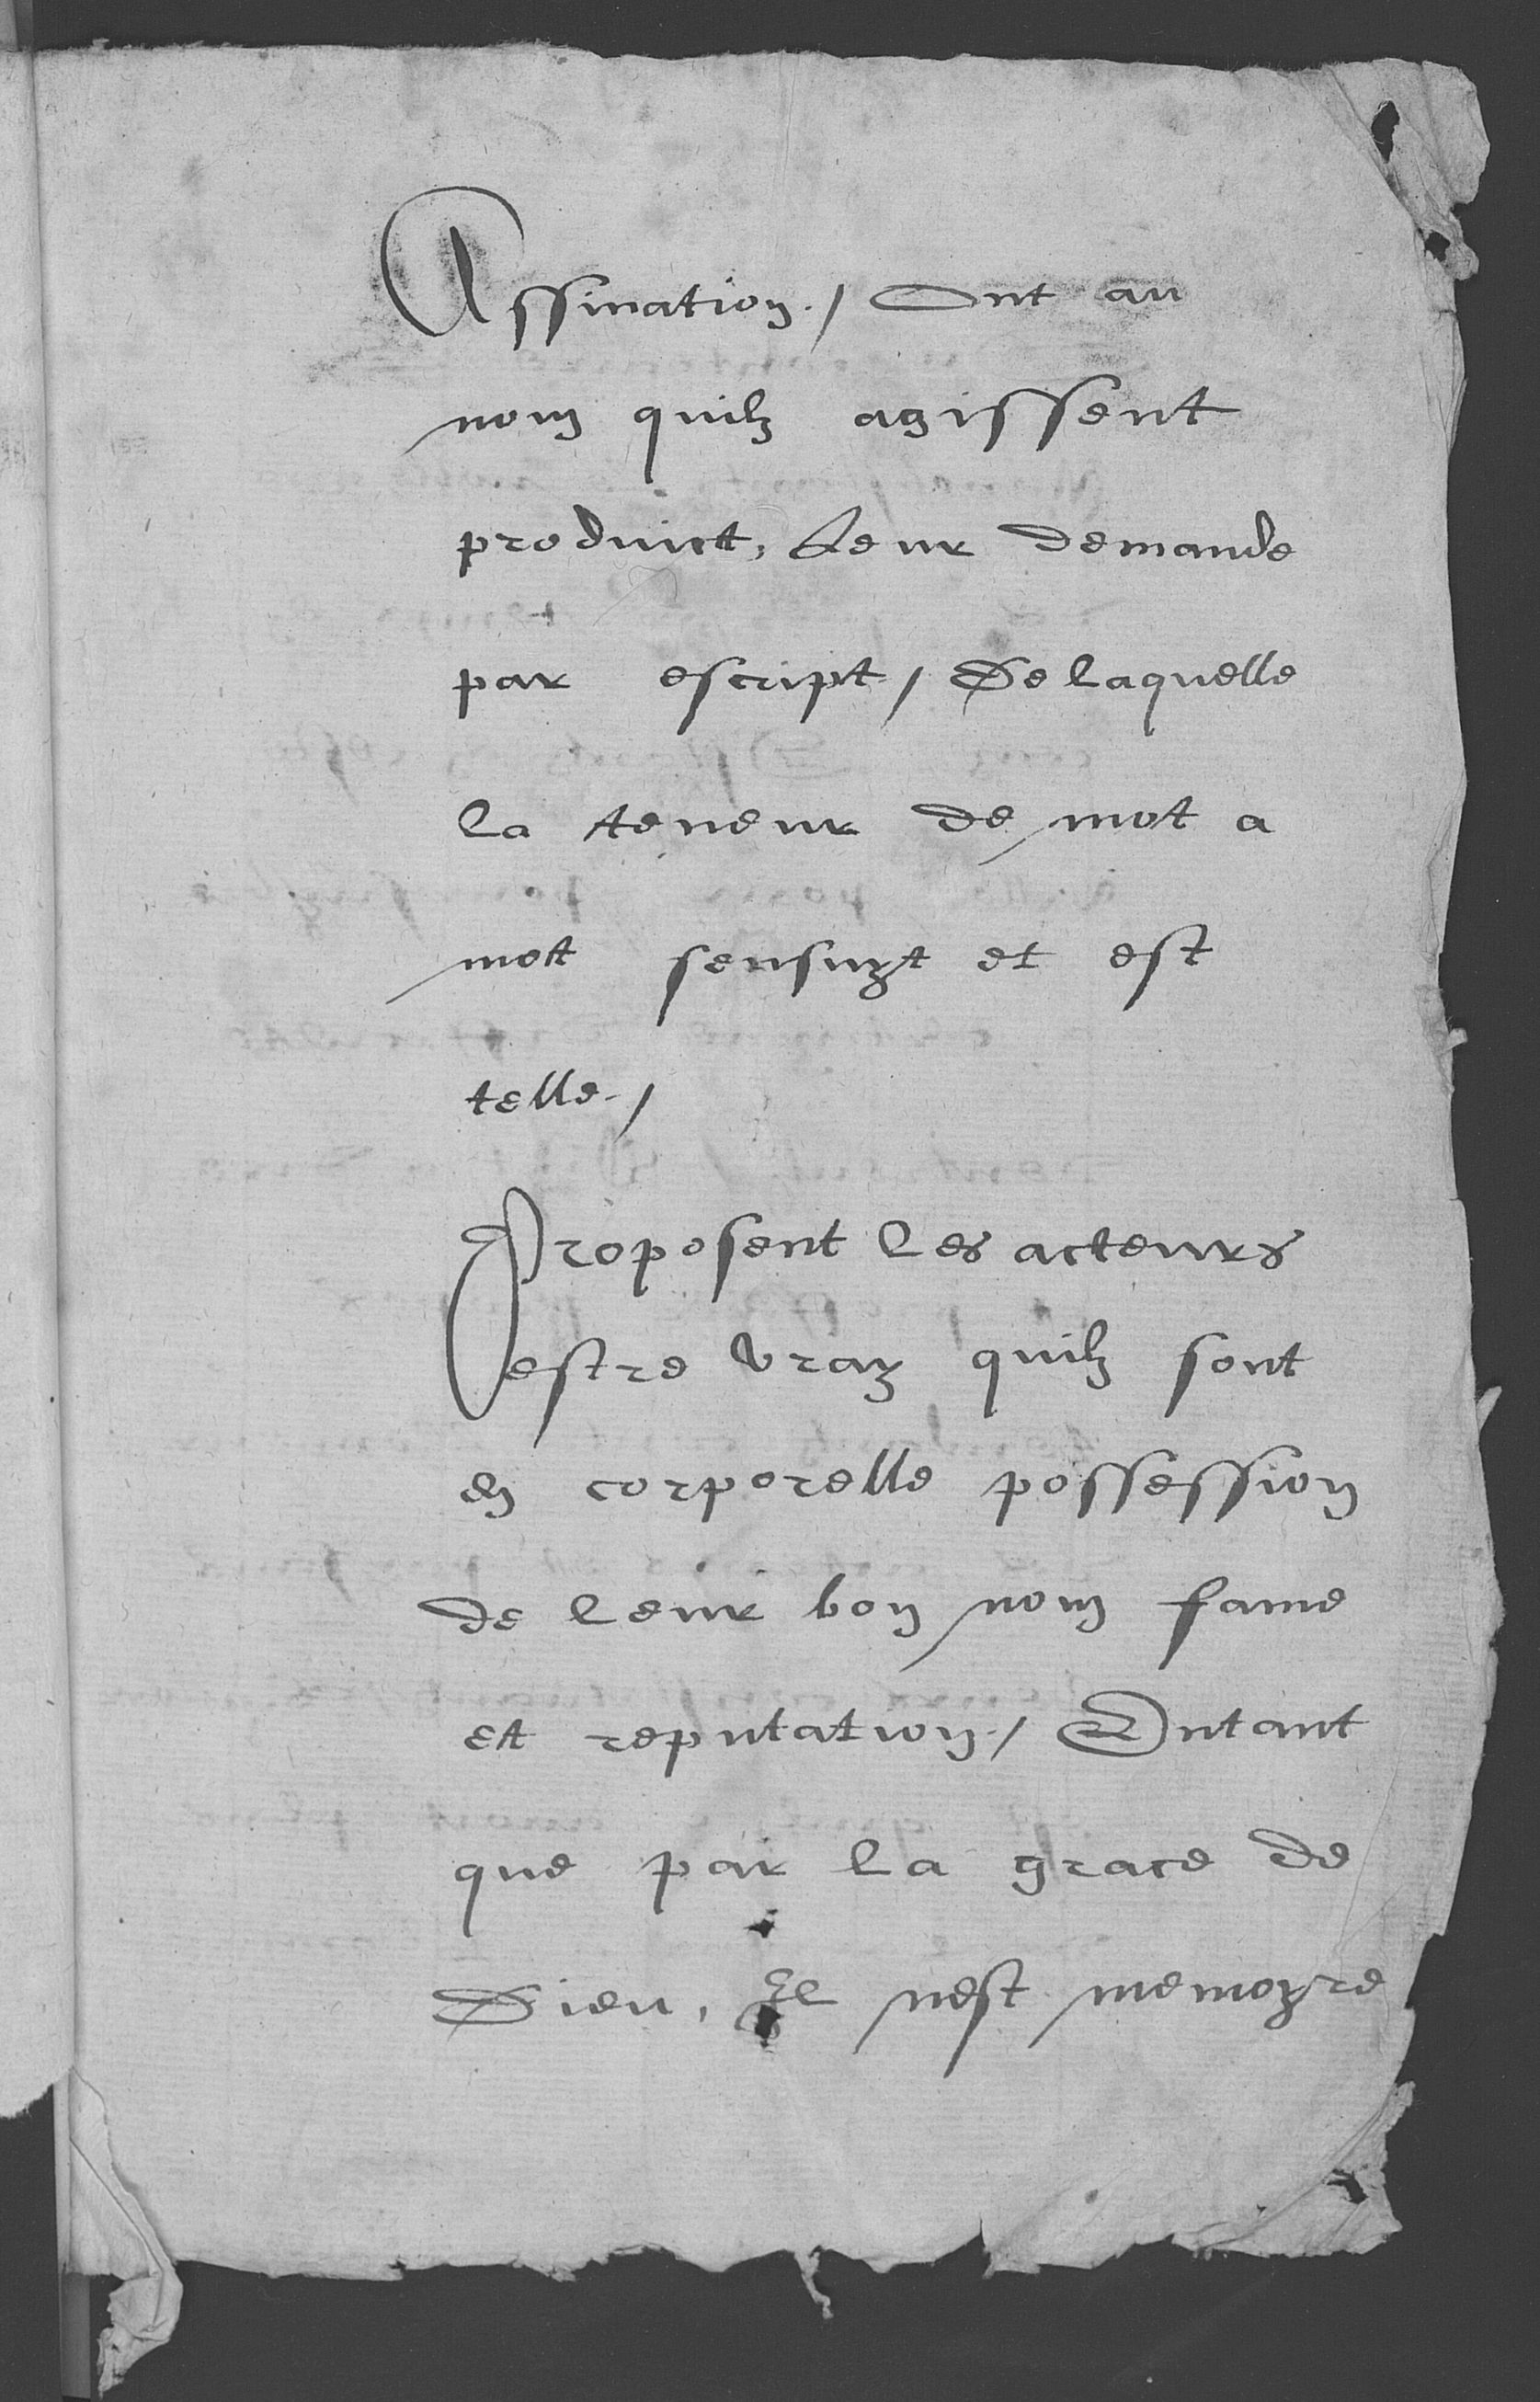 Assination./ Ont au
nom quilz agissent
produict, Leur demande
par escript / De laquelle
la teneur de mot a
mot sensuyt et est
telle./
Proposent les acteurs
estre vray quilz sont
en corporelle possession
de leur bon nom fame
et reputation./ Entant
que par la grace de
Dieu, Il nest memoyre